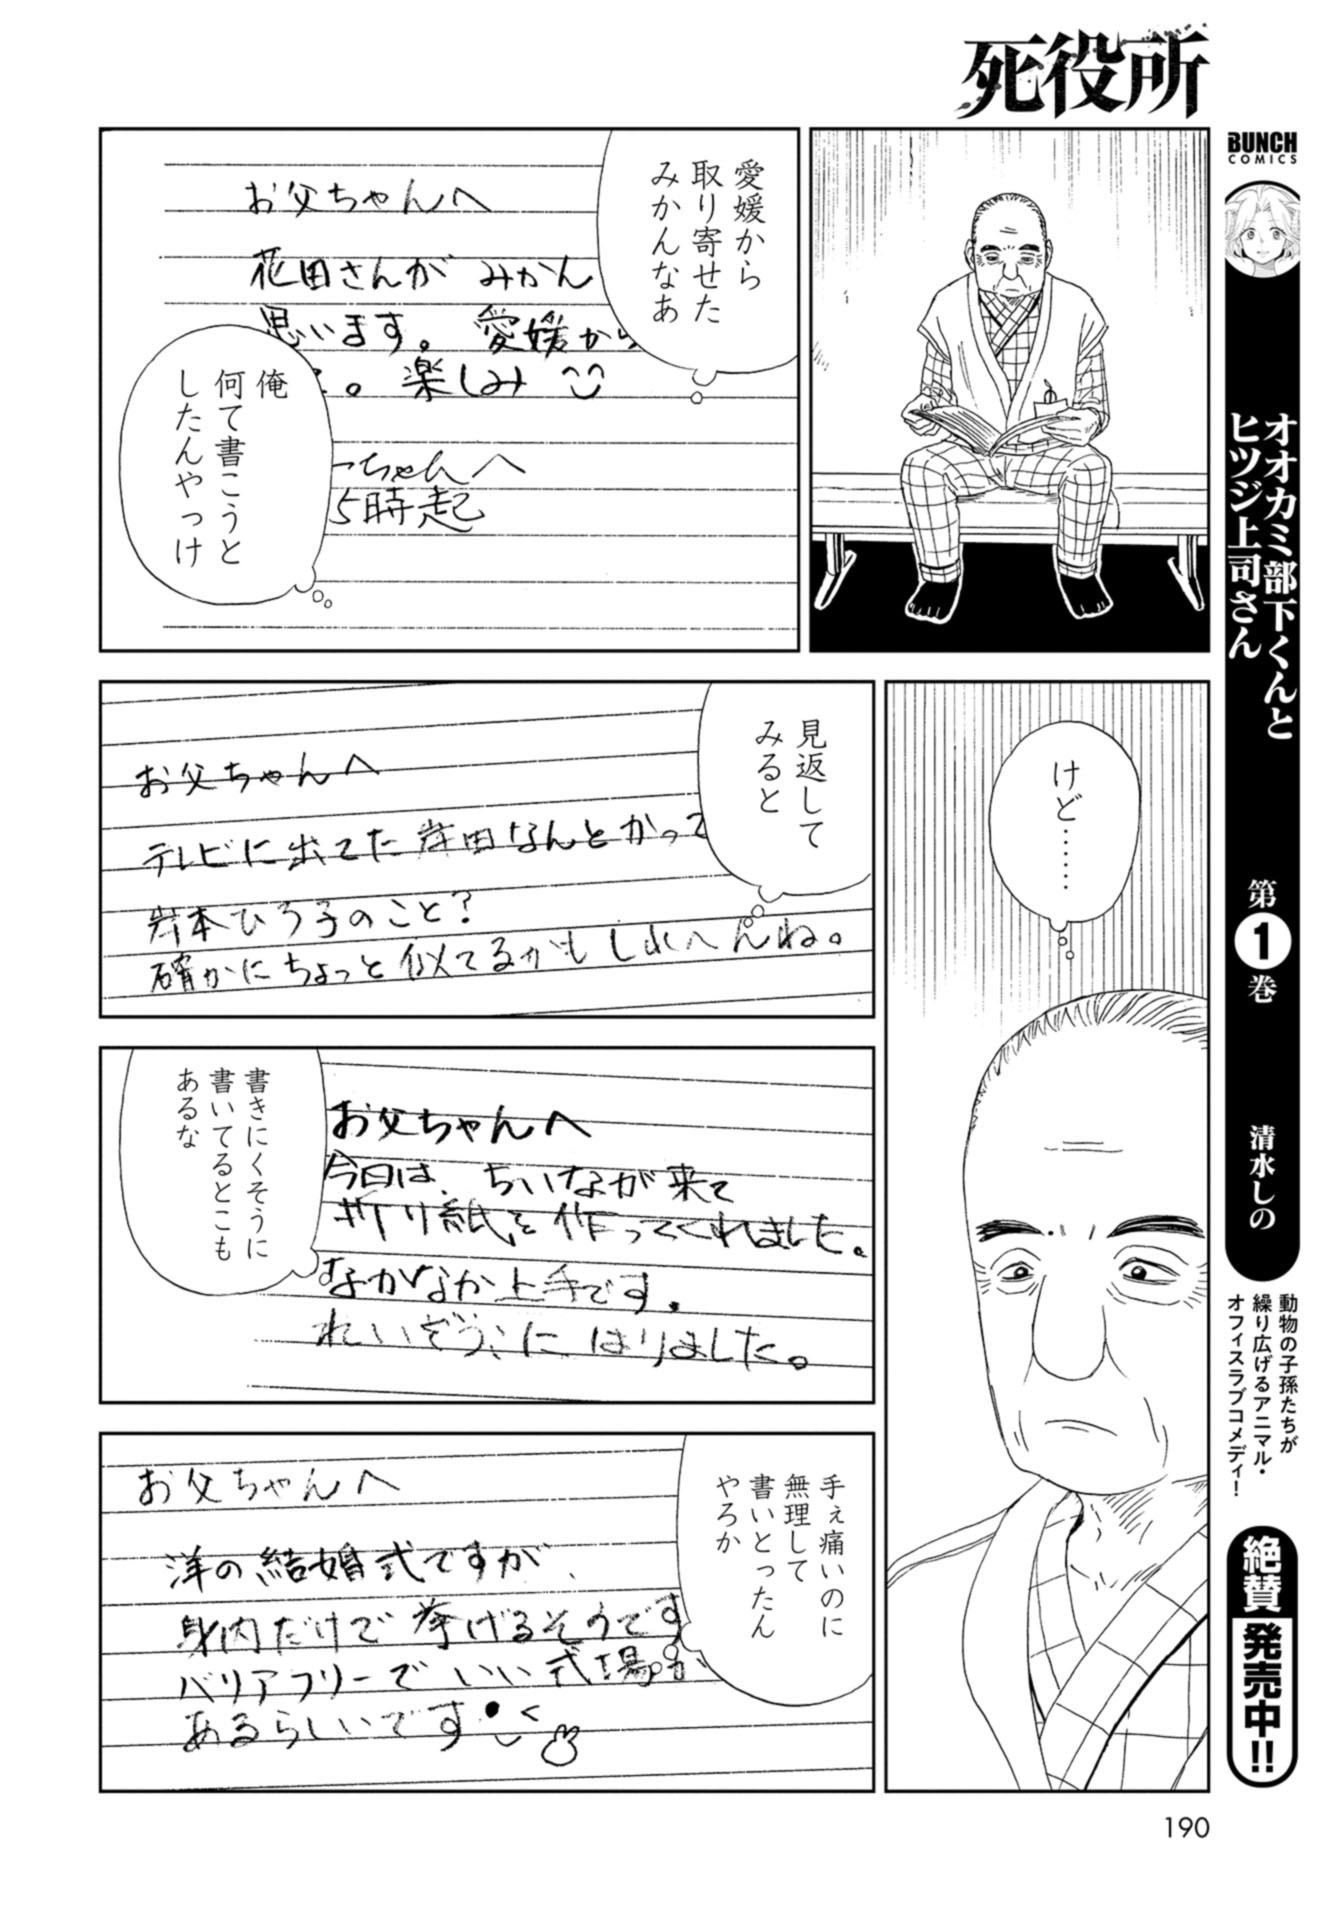 死役所
愛媛から
取り寄せた
みかんなあ
お父ちゃんへ
花田さんが みかん
思います。愛媛から
。楽しみ
俺
何て書こうと
したんやっけ
ーちゃんへ
5時起
けど……
見返して
みると
お父ちゃんへ
テレビに出てた岸田なんとかって
岩本ひろ子のこと?
確かにちょっと似てるかもしれへんね。
お父ちゃんへ
今日は、ちいなが来て
折り紙を作ってくれました。
なかなか上手です。
れいぞうこにはりました。
書きにくそうに
書いてるとこも
あるな
手ぇ痛いのに
無理して
書いとったん
やろか
お父ちゃんへ
洋の結婚式ですが、
身内だけで挙げるそうです
バリアフリーでいい式場が
あるらしいです
BUNCH
COMICS
オオカミ部下くんと
ヒツジ上司さん
第1巻
清水しの
動物の子孫たちが
繰り広げるアニマル・
オフィスラブコメディ!
絶賛発売中!!
190